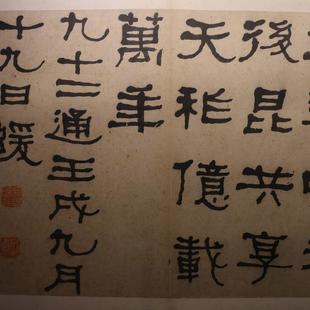 後昆共享
天祚億載
萬年
九十二通壬戌九月
十九日